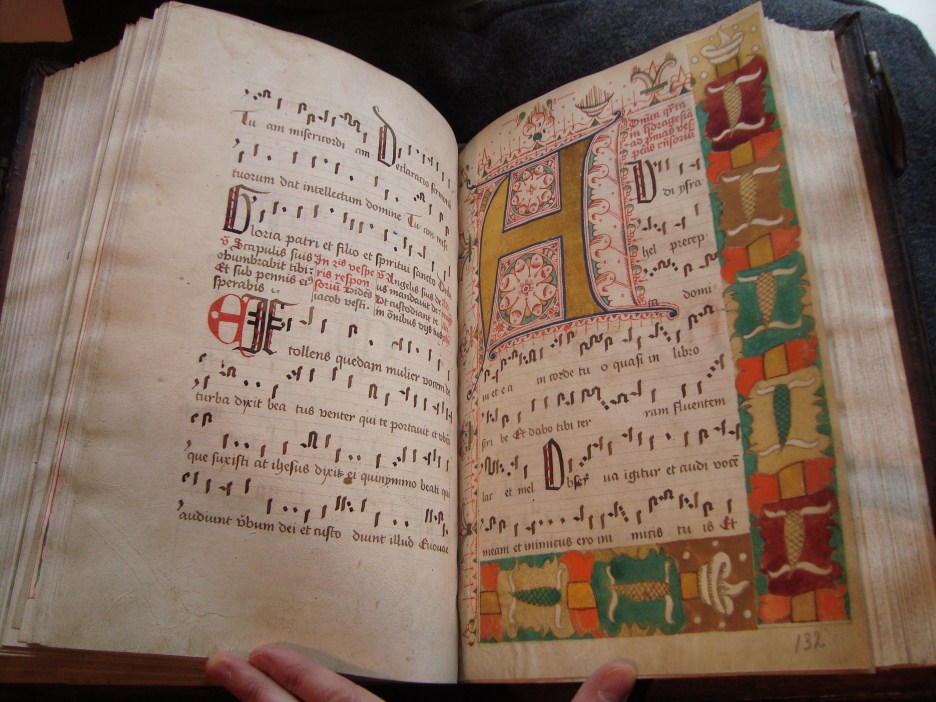 Tu am misericordi am Declaratio sermonū
tuorum dat intellectum domine Tu am mise
Gloria patri et filio et spiritui sancto
v̄ Scapulis suis In ris vespe v̄ Angelis suis de
obumbrabit tibi: ris respon us mandauit de
Et sub pennis eiꝰ sorium Vidēs Vt custodiant te
sperabis iacob vesti. in ōnibus vijs tuis
Extollens quedam mulier vocem de
turba dixit bea tus venter qui te portauit et vbera
que suxisti at ihesus dixit ei quinymmo beati qui
audiunt v̄bum dei et custo diunt illud Euouae
in xldragesīa
ad p̄mas ves
Audi ysra
hel precep
ta domi
ni et ea in corde tu o quasi in libro
scri be Et dabo tibi ter ram fluentem
lac et mel Obser ua igitur et audi vocē
meam et inimicus ero ini micis tu is Et
132